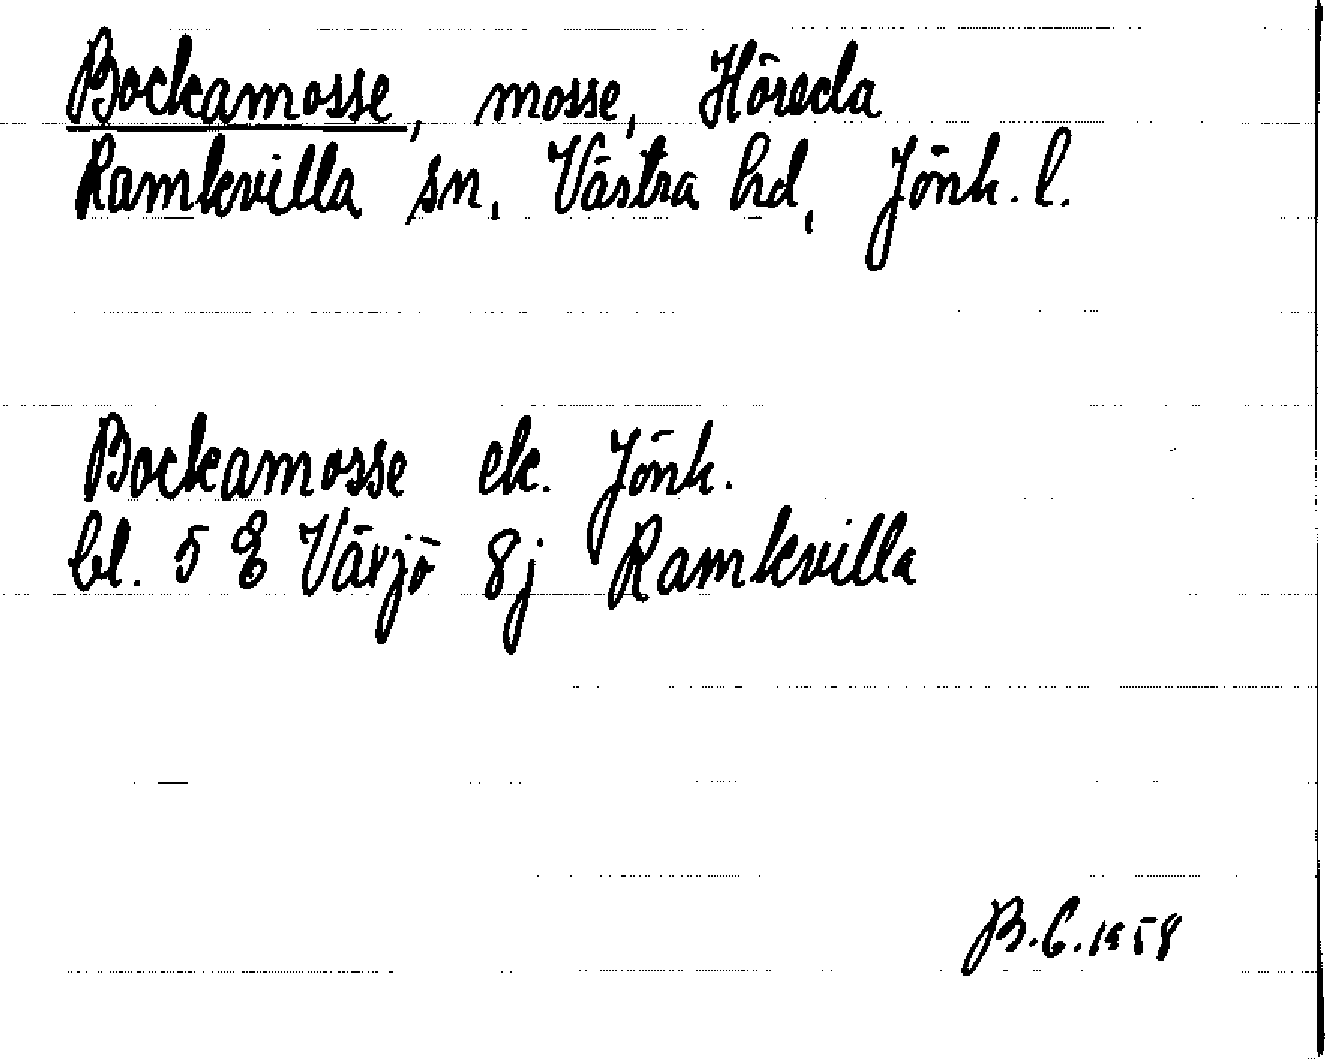 Bockamosse, mosse, Höreda
Ramkvilla sn, Västra hd, Jönk. l.
Bockamosse ek. Jönk.
bl. 5 E Växjö 8j Ramkvilla
B.C. 1958